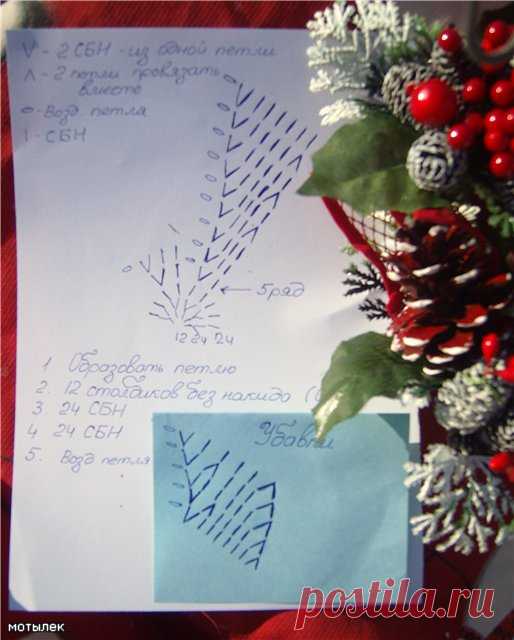 V - 2 СБН - из одной петли
Λ - 2 петли провязать
вместе
0 - Возд петля
I - СБН
← 5 ряд
12 24 24
1 Образовать петлю
2. 12 столбиков без накида (
3 24 СБН
4 24 СБН
5. Возд петля
Убавки
мотылек
postila.ru